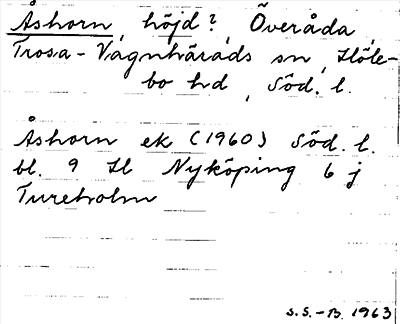 Åshorn, höjd?, Överåda,
Trosa-Vagnhärads sn, Höle-
bo hd, Söd. l.
Åshorn ek (1960) Söd. l.
bl. 9 H Nyköping 6 j
Tureholm
S.S.-B. 1963